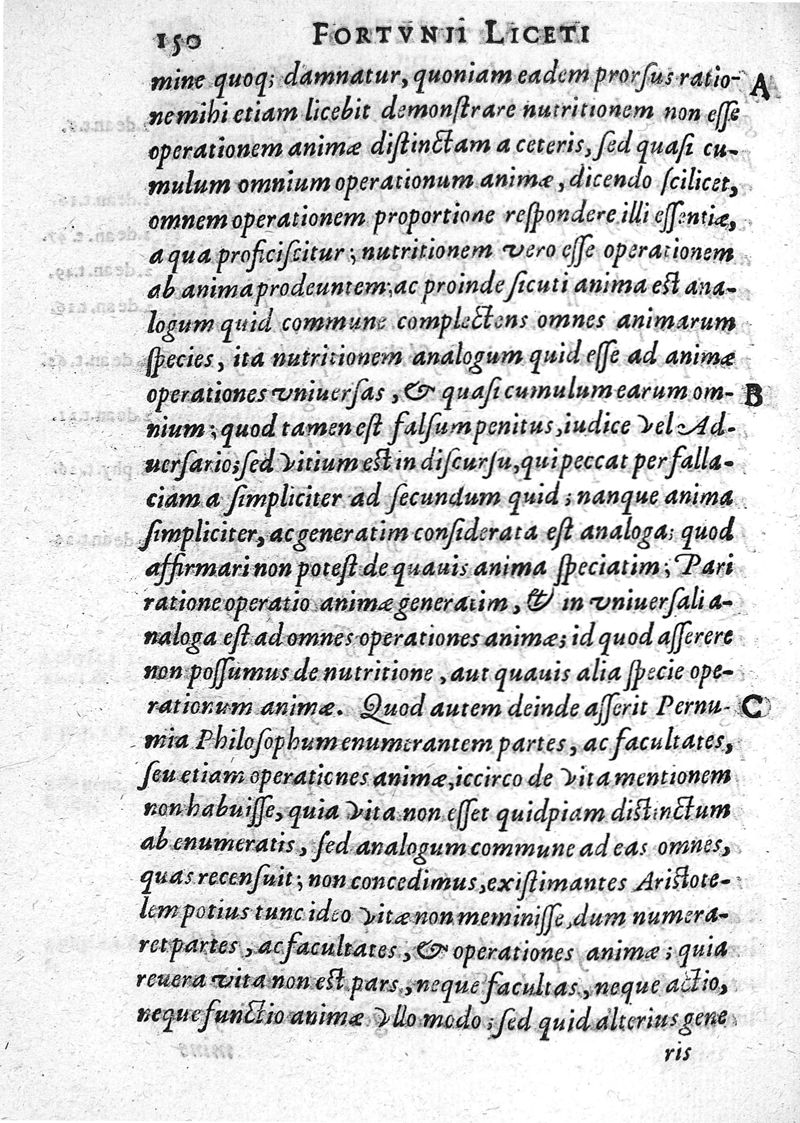 150 FORTVNII LICETI
mine quoq; damnatur, quoniam eadem prorſus ratio- A
ne mihi etiam licebit demonſtrare nutritionem non eſſe
operationem animæ diſtinctam a ceteris, ſed quaſi cu-
mulum omnium operationum animæ, dicendo ſcilicet,
omnem operationem proportione reſpondere illi eſſentiæ,
a qua proficiſcitur; nutritionem vero eſſe operationem
ab anima prodeuntem; ac proinde ſicuti anima eſt ana-
logum quid commune complectens omnes animarum
ſpecies, ita nutritionem analogum quid eſſe ad animæ
operationes vniuerſas, & quaſi cumulum earum om- B
nium; quod tamen eſt falſum penitus, iudice vel Ad-
uerſario; ſed vitium eſt in diſcurſu, qui peccat per falla-
ciam a ſimpliciter ad ſecundum quid; nanque anima
ſimpliciter, ac generatim conſiderata eſt analoga; quod
affirmari non poteſt de quauis anima ſpeciatim; Pari
ratione operatio animæ generatim, & in vniuerſali a-
naloga eſt ad omnes operationes animæ; id quod aſſerere
non poſſumus de nutritione, aut quauis alia ſpecie ope-
rationum animæ. Quod autem deinde aſſerit Pernu- C
mia Philoſophum enumerantem partes, ac facultates,
ſeu etiam operationes animæ, iccirco de vita mentionem
non habuiſſe, quia vita non eſſet quidpiam diſtinctum
ab enumeratis, ſed analogum commune ad eas omnes,
quas recenſuit; non concedimus, exiſtimantes Ariſtote-
lem potius tunc ideo vitæ non meminiſſe, dum numera-
ret partes, ac facultates, & operationes animæ; quia
reuera vita non eſt pars, neque facultas, neque actio,
neque functio animæ vllo modo; ſed quid alterius gene
ris